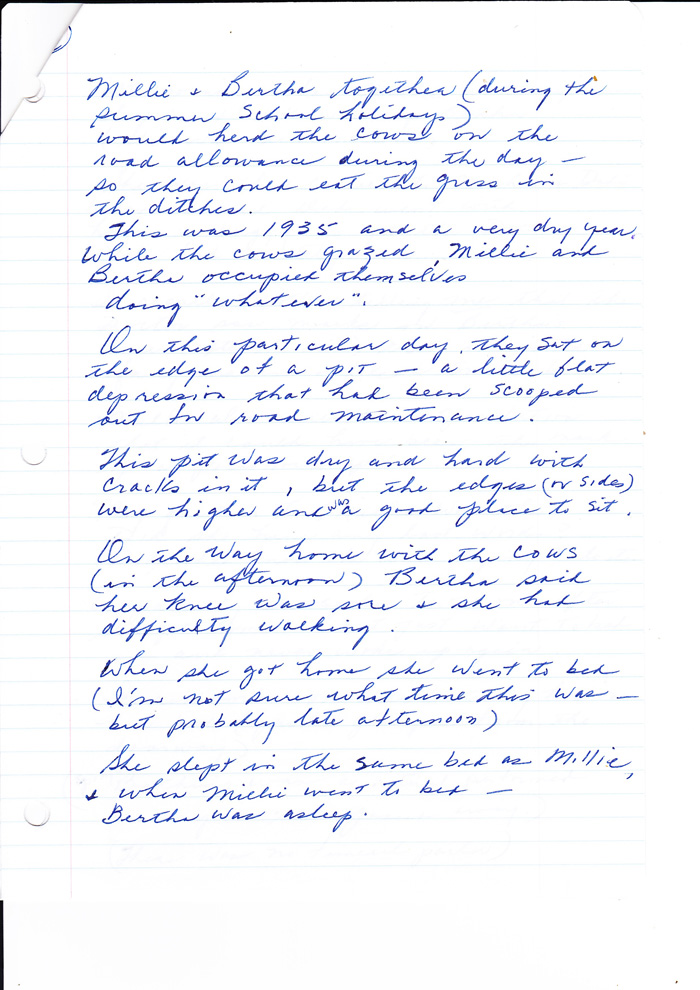 Millie & Bertha together (during the
summer School holidays)
would herd the cows on the
road allowance during the day –
so they could eat the grass in
the ditches.
This was 1935 and a very dry year.
While the cows grazed, Millie and
Bertha occupied themselves
doing "whatever".
On this particular day, they sat on
the edge of a pit – a little flat
depression that had been scooped
out for road maintenance.
This pit was dry and hard with
cracks in it, but the edges (or sides)
were higher and was a good place to sit.
On the way home with the cows
(in the afternoon) Bertha said
her knee was sore & she had
difficulty walking.
When she got home she went to bed
(I'm not sure what time this was –
but probably late afternoon)
She slept in the same bed as Millie,
& when Millie went to bed –
Bertha was asleep.